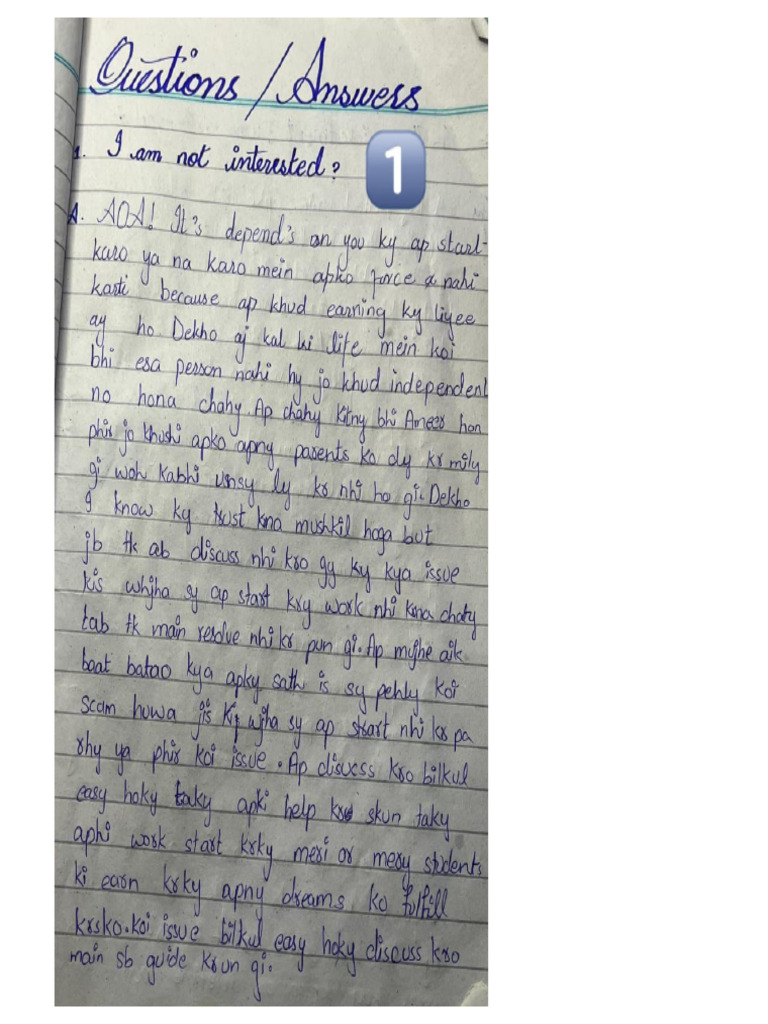 Questions / Answers
1. I am not interested?
1
A. AOA! It's depend's on you ky ap start-
karo ya na karo mein apko force nahi
karti because ap khud earning ky liyee
ay ho Dekho aj kal ki life mein koi
bhi esa person nahi hy jo khud independent
no hona chahy. Ap chahy kitny bhi Ameer hon
phir jo khushi apko apny parents ko dy kr mily
gi woh kabhi unsy ly kr nhi ho gi. Dekho
I know ky trust krna mushkil hoga but
jb tk ab discuss nhi kro gy ky kya issue
kis whjha sy ap start kry work nhi krna chahy
tab tk main resolve nhi kr pun gi. Ap mujhe aik
baat batao kya apky sath is sy pehly koi
scam huwa jis ki wjha sy ap start nhi kar pa
rhy ya phir koi issue. Ap disucss kro bilkul
easy hoky taky apki help kr skun taky
aphi work start krky meri or mery students
ki earn krky apny dreams ko fulfill
krsko. koi issue bilkul easy hoky discuss kro
main sb guide krun gi.